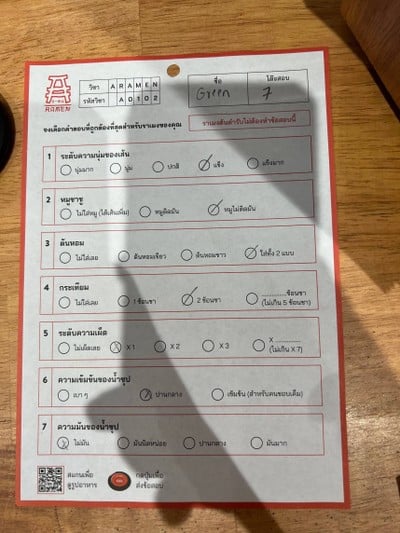 RAMEN
วิชา ARAMEN
รหัสวิชา A0102
ชื่อ
Green
โต๊ะสอบ
7
จงเลือกคำตอบที่ถูกต้องที่สุดสำหรับราเมงของคุณ
ราเมงต้นตำรับไม่ต้องทำข้อสอบนี้
1 ระดับความนุ่มของเส้น
นุ่มมาก นุ่ม ปกติ แข็ง แข็งมาก
2 หมูชาชู
ไม่ใส่หมู (ใส่เส้นเพิ่ม) หมูติดมัน หมูไม่ติดมัน
3 ต้นหอม
ไม่ใส่เลย ต้นหอมเขียว ต้นหอมขาว ใส่ทั้ง 2 แบบ
4 กระเทียม
ไม่ใส่เลย 1 ช้อนชา 2 ช้อนชา ............ช้อนชา
(ไม่เกิน 5 ช้อนชา)
5 ระดับความเผ็ด
ไม่เผ็ดเลย X 1 X 2 X 3 X ............
(ไม่เกิน X 7)
6 ความเข้มข้นของน้ำซุป
เบา ๆ ปานกลาง เข้มข้น (สำหรับคนชอบเค็ม)
7 ความมันของน้ำซุป
ไม่มัน มันนิดหน่อย ปานกลาง มันมาก
สแกนเพื่อ
ดูรูปอาหาร
กดปุ่มเพื่อ
ส่งข้อสอบ